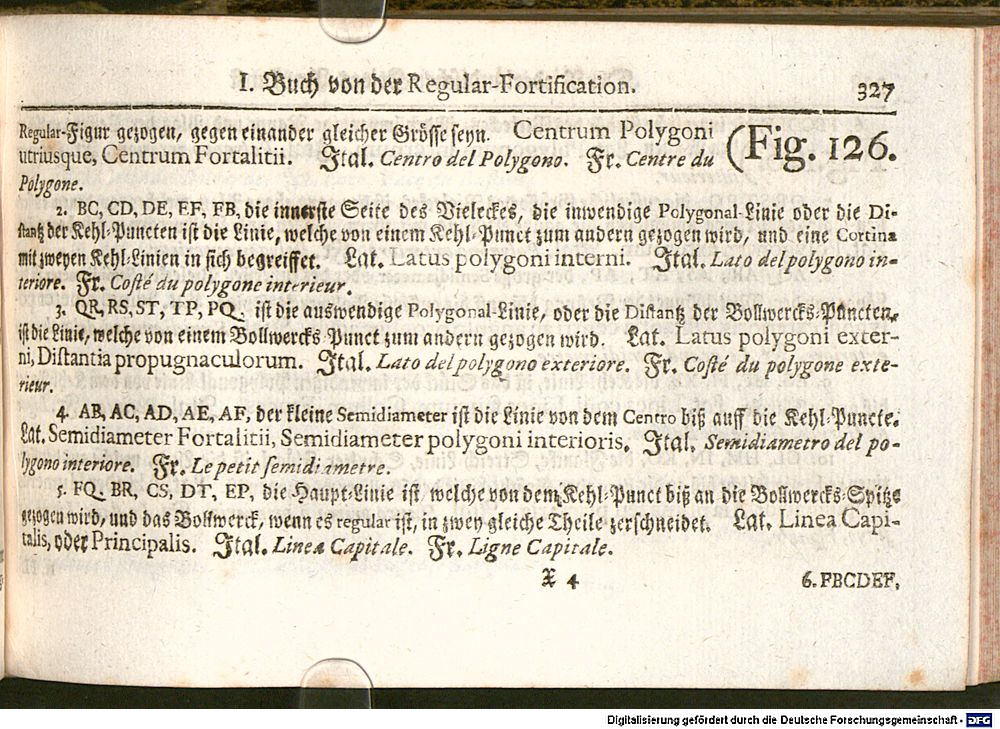 I. Buch von der Regular-Fortification. 327
Regular-Figur gezogen, gegen einander gleicher Grösse seyn. Centrum Polygoni (Fig. 126.
utriusque, Centrum Fortalitii. Ital. Centro del Polygono. Fr. Centre du
Polygone.
2. BC, CD, DE, EF, FB, die innerste Seite des Vieleckes, die inwendige Polygonal-Linie oder die Di-
stantz der Kehl-Puncten ist die Linie, welche von einem Kehl-Punct zum andern gezogen wird, und eine Cortina
mit zweyen Kehl-Linien in sich begreiffet. Lat. Latus polygoni interni. Ital. Lato del polygono in-
teriore. Fr. Costé du polygone interieur.
3. QR, RS, ST, TP, PQ. ist die auswendige Polygonal-Linie, oder die Distantz der Bollwercks-Puncten,
ist die Linie, welche von einem Bollwercks-Punct zum andern gezogen wird. Lat. Latus polygoni exter-
ni, Distantia propugnaculorum. Ital. Lato del polygono exteriore. Fr. Costé du polygone exte-
rieur.
4. AB, AC, AD, AE, AF, der kleine Semidiameter ist die Linie von dem Centro biß auff die Kehl-Puncte.
Lat. Semidiameter Fortalitii, Semidiameter polygoni interioris. Ital. Semidiametro del po-
lygono interiore. Fr. Le petit semidiametre.
5. FQ. BR, CS, DT, EP, die Haupt-Linie ist, welche von dem Kehl-Punct biß an die Bollwercks-Spitze
gezogen wird, und das Bollwerck, wenn es regular ist, in zwey gleiche Theile zerschneidet. Lat. Linea Capi-
talis, oder Principalis. Ital. Linea Capitale. Fr. Ligne Capitale.
X 4 6. FBCDEF,
Digitalisierung gefördert durch die Deutsche Forschungsgemeinschaft - DFG